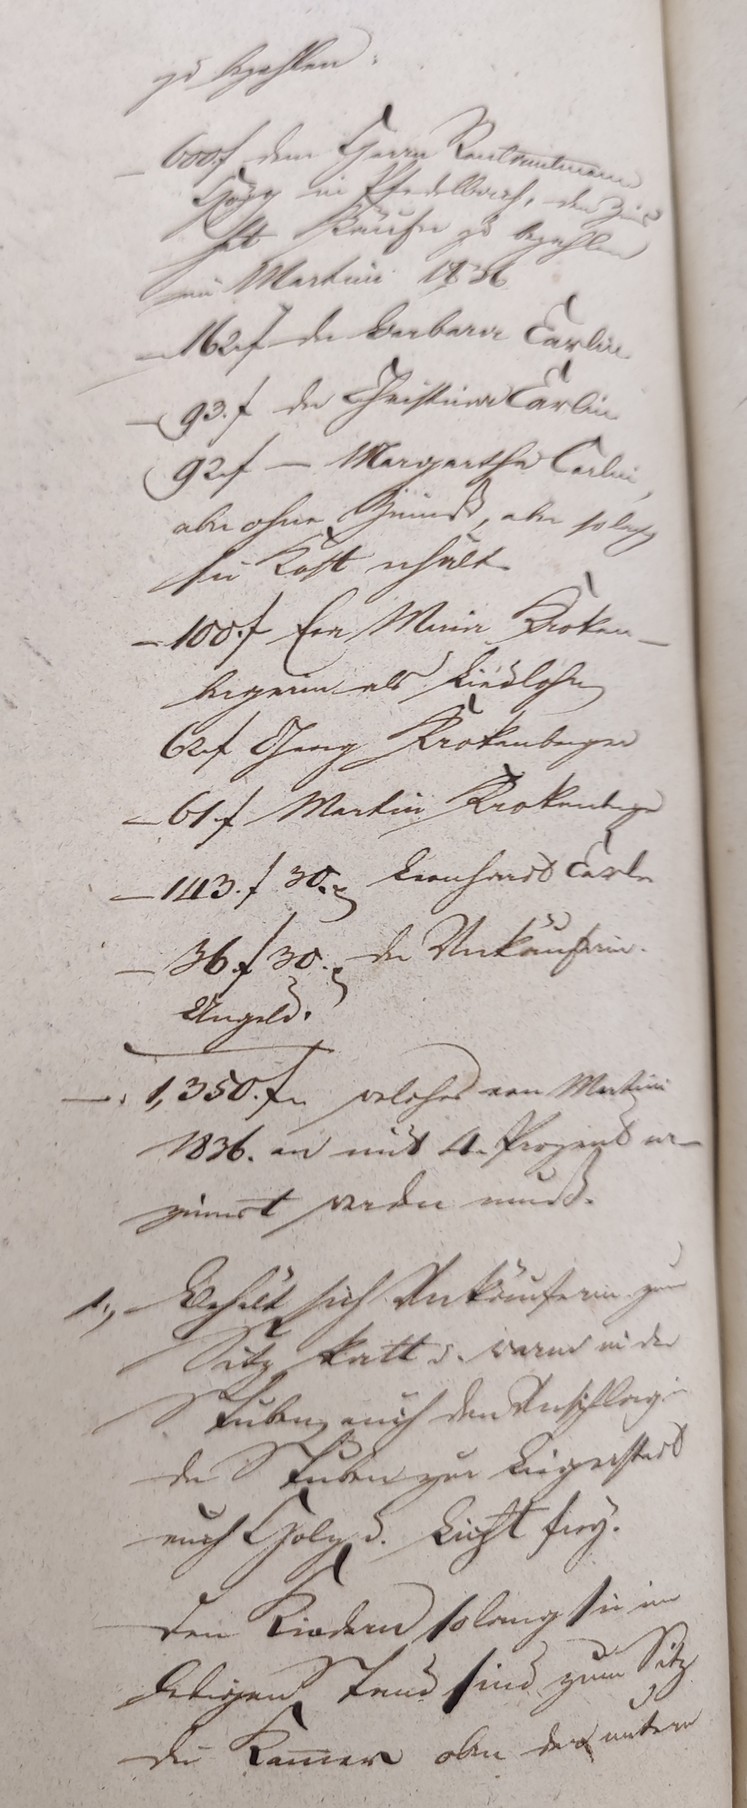 zu bezahlen:
– 600.f dem Herrn Rentamtmann
Hägg in Pfedelbach, den Zins
hat Käufer zu bezahlen
an Martini 1836
– 162.f der Barbara Carlin
– 93.f der Christina Carlin
92.f – Margaretha Carlin,
aber ohne Zinnß, aber solang
sie Kost erhält.
– 100.f Eva Maria Kroken–
bergerin als Liedlohn
62.f Georg Krokenberger
– 61.f Martin Krokenberger
– 143.f 30. Leonhard Carle
– 36.f 30. der Verkäuferin
Angeld.
–. 1,350.f welches von Martini
1836. an mit 4. Prozent ver–
zinnst werden muß.
1., Behält sich Verkäuferin zum
Sitz kalt u. warm in der
Stuben, auch den Verschlag in
der Stuben zur Liegerstatt
auch Holz u. Licht frey.
Den Kindern solang sie im
ledigen Stand sind zum Sitz
die Kammer oben der untern